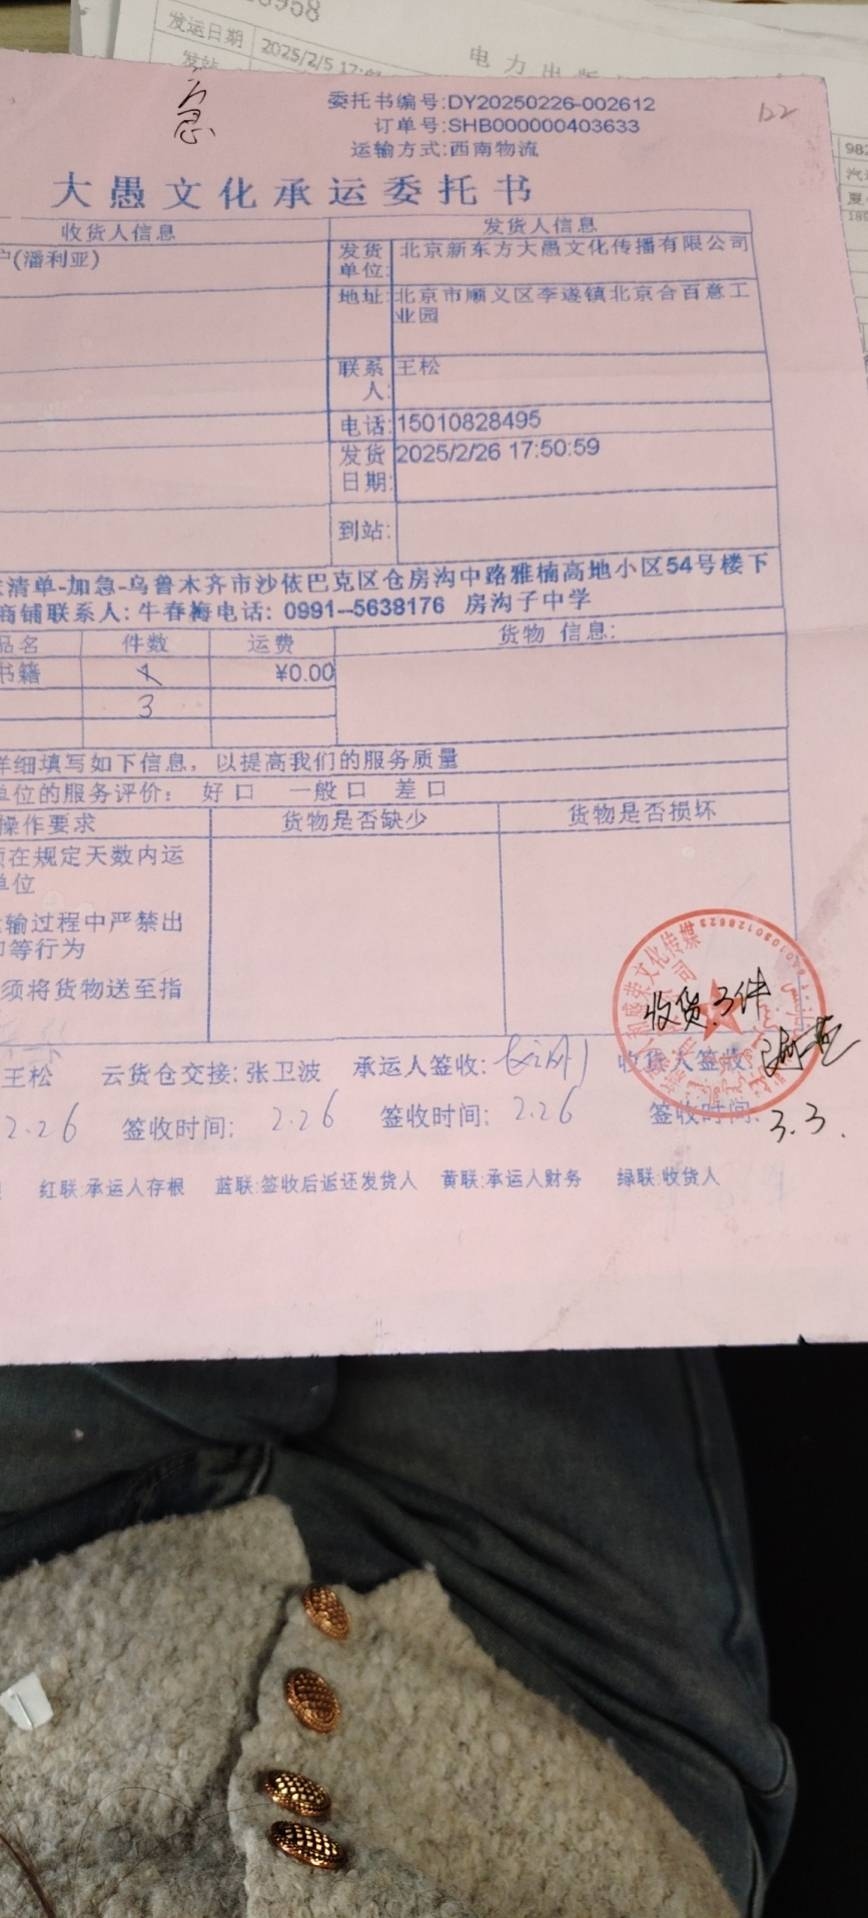 发运日期 2025/2/5
发站
电力出版
982
急
122
委托书编号:DY20250226-002612
订单号:SHB000000403633
运输方式:西南物流
大愚文化承运委托书
收货人信息 发货人信息
户(潘利亚) 发货单位: 北京新东方大愚文化传播有限公司
地址: 北京市顺义区李遂镇北京合百意工
业园
联系人: 王松
电话: 15010828495
发货日期: 2025/2/26 17:50:59
到站:
清单-加急-乌鲁木齐市沙依巴克区仓房沟中路雅楠高地小区54号楼下
商铺联系人: 牛春梅电话: 0991--5638176 房沟子中学
品名 件数 运费 货物 信息:
书籍 ¥0.00
3
详细填写如下信息，以提高我们的服务质量
单位的服务评价： 好口 一般口 差口
操作要求 货物是否缺少 货物是否损坏
在规定天数内运
单位
输过程中严禁出
等行为
须将货物送至指
文化传媒
收货3件
王松 云货仓交接: 张卫波 承运人签收: 收货人签收:
2.26 签收时间: 2.26 签收时间: 2.26 签收时间: 3.3.
红联:承运人存根 蓝联:签收后返还发货人 黄联:承运人财务 绿联:收货人